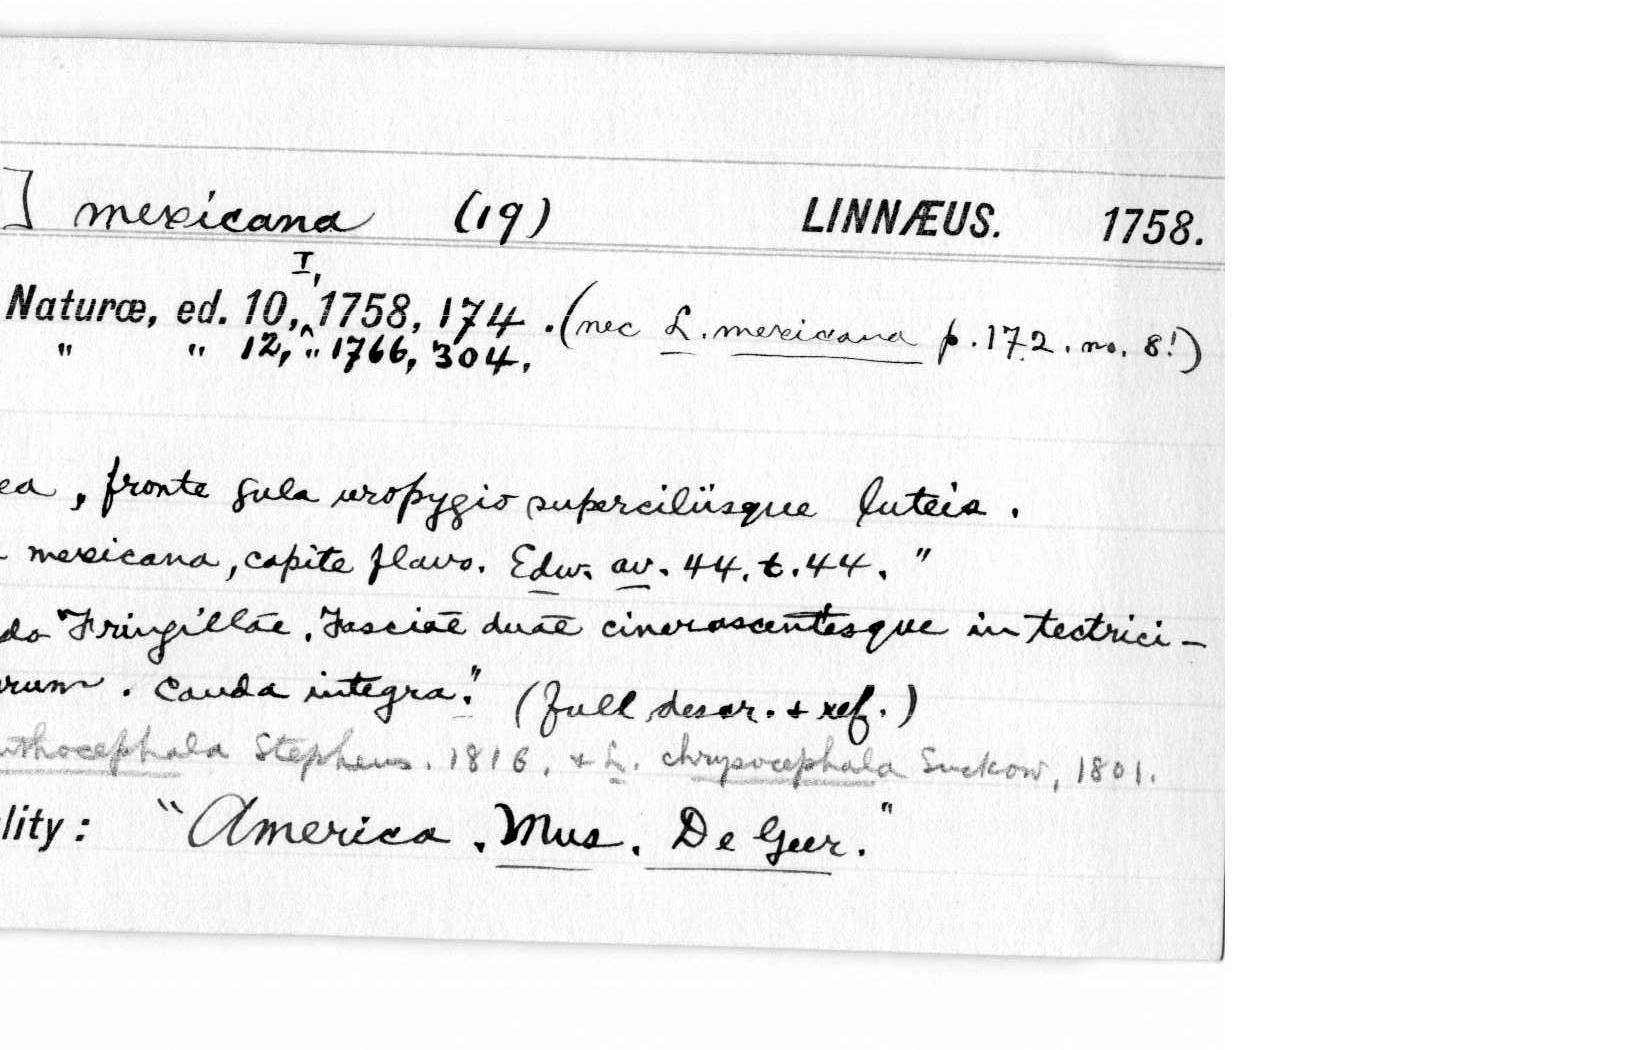 ] mexicana (19) LINNÆUS. 1758.
I,
Naturæ, ed. 10,‸1758, 174. (nec L. mexicana p. 172. no. 8!)
" " 12, " 1766, 304.
ea, fronte gula uropygio superciliisque luteis.
mexicana, capite flavo. Edw. av. 44. t. 44."
do "Fringillae. Fasciae duae cinerascentesque in tectrici-
rum. Cauda integra." (full descr. + ref.)
nthocephala Stephens. 1816. + L. chrysocephala Suckow, 1801.
lity: "America. Mus. De Geer."